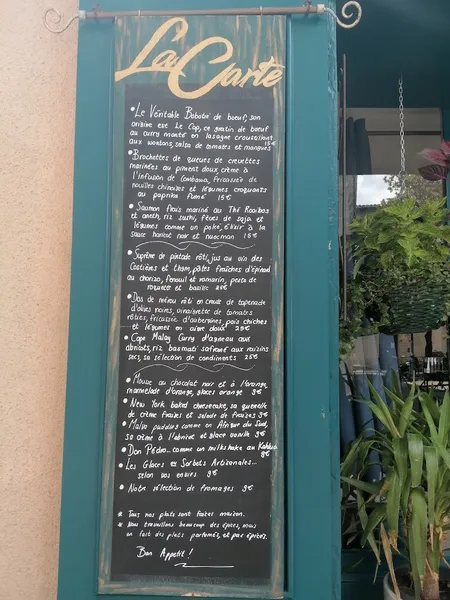 La Carte
• Le Véritable Bobotie de boeuf, son
origine est Le Cap, ce gratin de boeuf
au curry monté en lasagne croustillant
aux wontons, salsa de tomates et mangues 15€
• Brochettes de queues de crevettes
marinées au piment doux, crème à
l'infusion de Combawa, fricassée de
nouilles chinoises et légumes croquants
au paprika fumé 15€
• Saumon frais mariné au Thé Rooibos
et aneth, riz sushi, fèves de soja et
légumes comme un poké, élixir à la
sauce haricot noir et nuocman 15€
• Suprême de pintade rôti, jus au vin des
Costières et thym, pâtes fraîches d'épinard
au chorizo, fenouil et romarin, pesto de
roquette et basilic
• Dos de mérou rôti en croute de tapenade
d'olives noires, vinaigrette de tomates
rôties, fricassée d'aubergines pois chiches
et légumes en aigre doux 25€
• Cape Malay Curry d'agneau aux
abricots, riz basmati safrané aux raisins
secs, sa sélection de condiments 25€
• Mousse au chocolat noir et à l'orange,
marmelade d'orange, glaces orange 9€
• New York baked cheesecake, sa quenelle
de crème fraiche et salade de fraises 9€
• Malva pudding comme en Afrique du Sud,
sa crème à l'abricot et glace vanille 9€
• Don Pédro... comme un milkshake au Kahlua
9€
• Les Glaces et Sorbets Artisanales...
selon vos envies 9€
• Notre sélection de fromages 9€
* Tous nos plats sont faites maison.
* Nous travaillons beaucoup des épices, nous
en fait des plats parfumés, et pas épicés.
Bon Appetit !